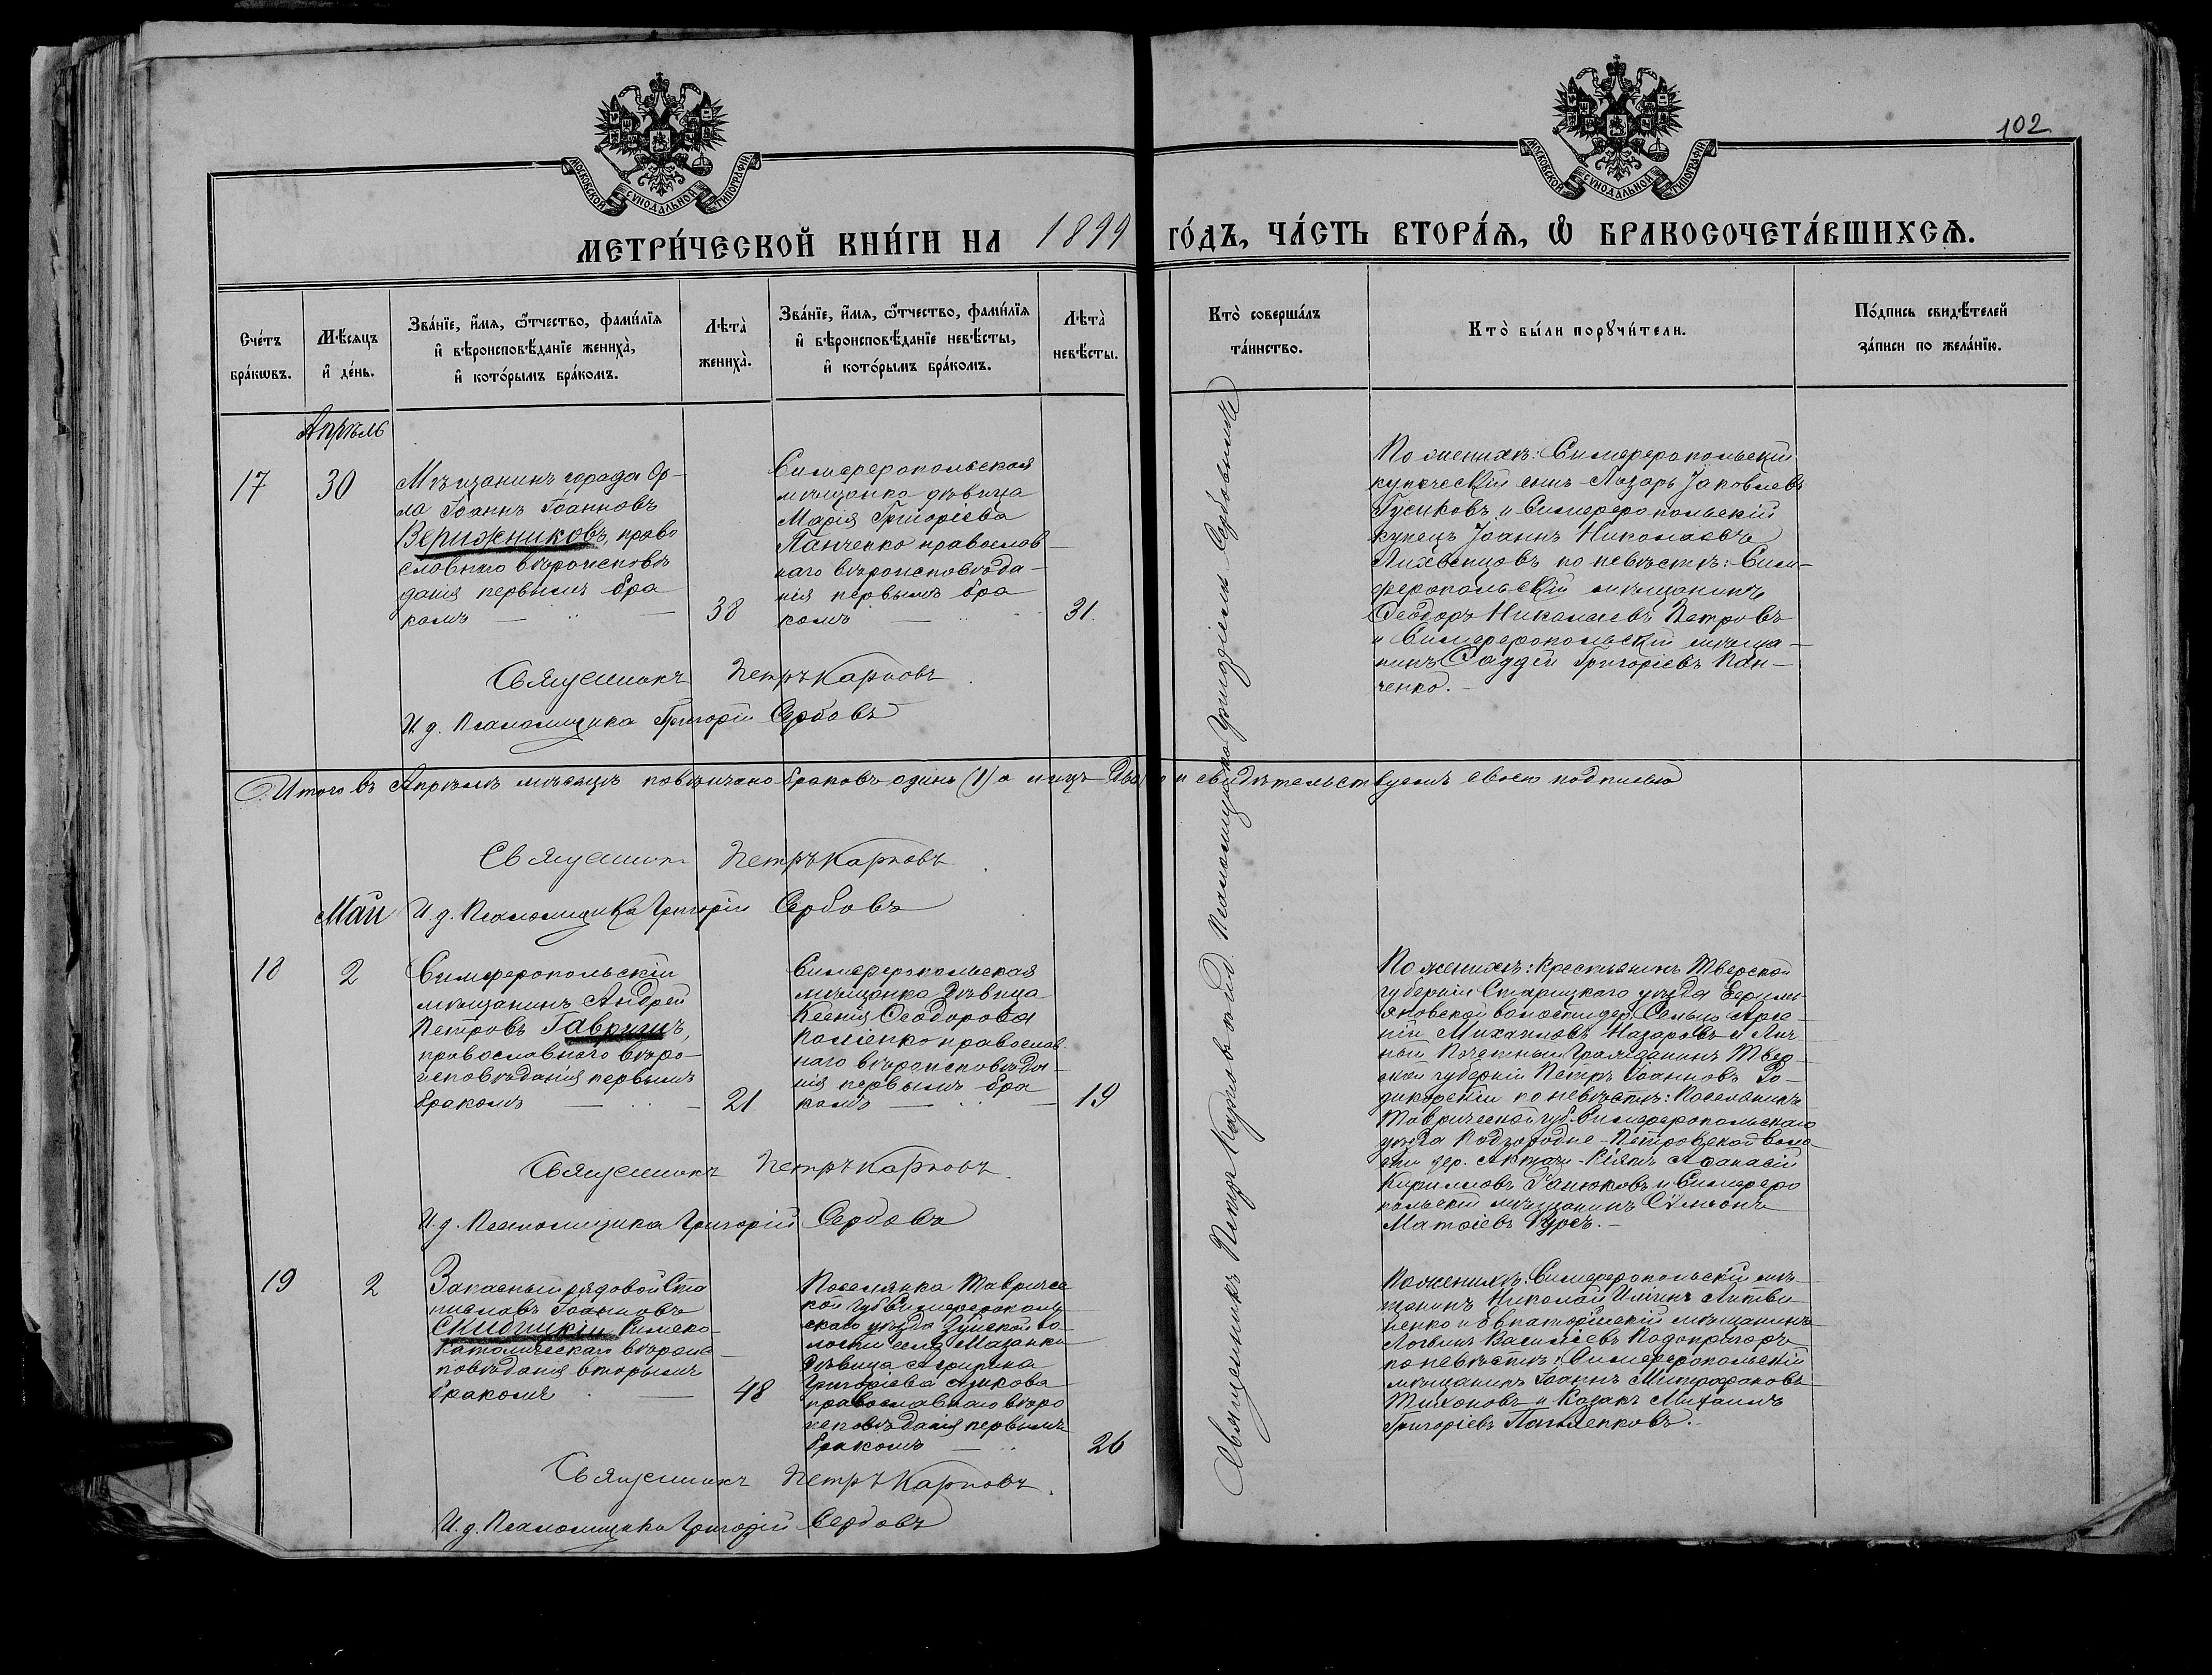 102
МОСКОВСКОЙ СУНОДАЛЬНОЙ ТИПОГРАФІИ
МОСКОВСКОЙ СУНОДАЛЬНОЙ ТИПОГРАФІИ
МЕТРИ́ЧЕСКОЙ КНИ́ГИ НА 1899 ГО́ДЪ, ЧА́СТЬ ВТОРА́Ѧ, Ѽ БРАКОСОЧЕТА́ВШИХСѦ.
Сче́тъ
бра́кѡвъ.
Мѣ́сѧцъ
и҆ де́нь.
Зва́нїе, и҆́мѧ, ѻ҆́тчество, фами́лїѧ
и҆ вѣроисповѣ́данїе жениха̀,
и҆ кото́рымъ бра́комъ.
Лѣта̀
жениха̀.
Зва́нїе, и҆́мѧ, ѻ҆́тчество, фами́лїѧ
и҆ вѣроисповѣ́данїе невѣ́сты,
и҆ кото́рымъ бра́комъ.
Лѣта̀
невѣ́сты.
Кто̀ соверша́лъ
та́инство.
Кто̀ бы́ли порꙋчи́тели.
По́дпись свидѣ́телей
за́писи по жела́нїю.
Апрѣль
17
30
Мѣщанинъ города Ор-
ла Іоаннъ Іоанновъ
Верижниковъ, право
славнаго вѣроисповѣ
данія первымъ бра
комъ
38
Симферопольская
мѣщанка дѣвица
Марія Григоріева
Панченко православ-
наго вѣроисповѣда-
нія первымъ бра
комъ
31.
По женихѣ: Симферопольскій
купеческій сынъ Лазарь Іаковлевъ
Гусиковъ и Симферопольскій
купецъ Іоаннъ Николаевъ
Лихвенцовъ по невѣстѣ: Сим-
феропольскій мѣщанинъ
Ѳеодоръ Николаевъ Петровъ
и Симферопольскій мѣща-
нинъ Ѳаддей Григоріевъ Пан-
ченко.
Священникъ Петръ Карповъ.
И. д. Псаломщика Григорій Сербовъ
Итого въ Апрѣлѣ мѣсяцѣ повѣнчано браковъ одинъ (1) а лицъ два и свидѣтельствуемъ своею подписью
Священникъ Петръ Карповъ.
Май
И. д. Псаломщика Григорій Сербовъ
18
2
Симферопольскій
мѣщанинъ Андрей
Петровъ Гавришъ,
православнаго вѣро-
исповѣданія первымъ
бракомъ
21
Симферопольская
мѣщанка дѣвица
Ксенія Ѳеодорова
православ-
наго вѣроисповѣда-
нія первымъ бра
комъ
19
По женихѣ: Крестьянинъ Тверской
губерніи Старицкаго уѣзда Емель-
яновской волости дер. Сельцо Арсе-
ній Михаиловъ Назаровъ и Лич-
ный Почетный Гражданинъ Твер-
ской губерніи Петръ Іоанновъ
по невѣстѣ: Поселянинъ
Таврической губ. Симферопольскаго
уѣзда Подгородне-Петровской воло-
сти дер. Актачи-Кіятъ Аѳанасій
Кирилловъ и Симферо
польскій мѣщанинъ Сѵмеонъ
Матѳіевъ
Священникъ Петръ Карповъ.
И. д. Псаломщика Григорій Сербовъ
19
2
Запасный рядовой Ста
ниславъ Іоанновъ
Скибицкій Римско-
католическаго вѣроис-
повѣданія вторымъ
бракомъ
48
Поселянка Тавричес
кой губ. Симферополь
скаго уѣзда Зуйской во-
лости села Мазанки
дѣвица Агрипина
Григоріева
православнаго вѣро
исповѣданія первымъ
бракомъ
26
По женихѣ: Симферопольскій мѣ-
щанинъ Николай Ильинъ Литви-
ненко и Евпаторійскій мѣщанинъ
Логвинъ Василіевъ Подопригоръ
по невѣстѣ: Симферопольскій
мѣщанинъ Іоаннъ Митрофановъ
Тихоновъ и Казакъ Михаилъ
Григоріевъ
Священникъ Петръ Карповъ.
И. д. Псаломщика Григорій Сербовъ
Священникъ Петръ Карповъ и и. д. Псаломщика Григорій Сербовымъ